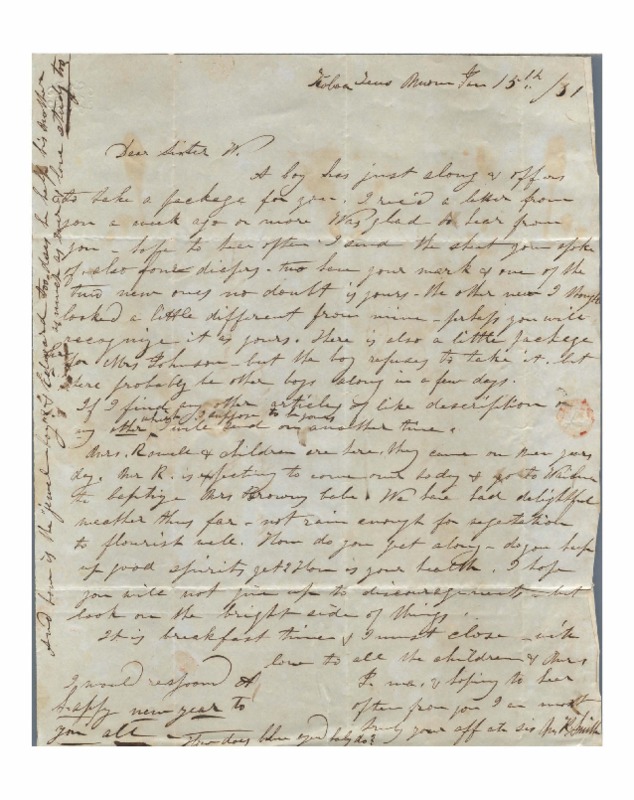 Jan 15th /51
Dear Sister W.
A boy has just along & offers
to take a package for you. I rec'd a letter from
you a week ago or more Was glad to hear from
you hope to hear often I send the shirt you spoke
of also four diapers - two have your mark & one of the
two new ones no doubt is yours - the other new I thought
looked a little different from mine - perhaps you will
recognize it as yours. There is also a little package
for Mrs Johnson - but the boy refuses to take it. but
there probably be other boys along in a few days.
If I find any other articles of like description
which I suppose to be yours
any other will send on another time.
Mrs. Rowell & children are here, they came on New years
day. Mr R. is expecting to come over to day & go to
to baptize Mrs Browns babe. We have had delightful
weather thus far - not rain enough for vegetation
to flourish well. How do you get along - do you keep
up good spirits yet? How is your health. I hope
you will not give up to discouragements - but
look on the bright side of things.
It is breakfast time & I must close - with
love to all the children & Mrs
& hoping to hear
often from you I am most
truly your aff ate sis Smith
I would respond A
happy new year to
you all -
How does blue eyed baby do?
And how is the jewel Edward today does he help his mother
as much as ever & love study too